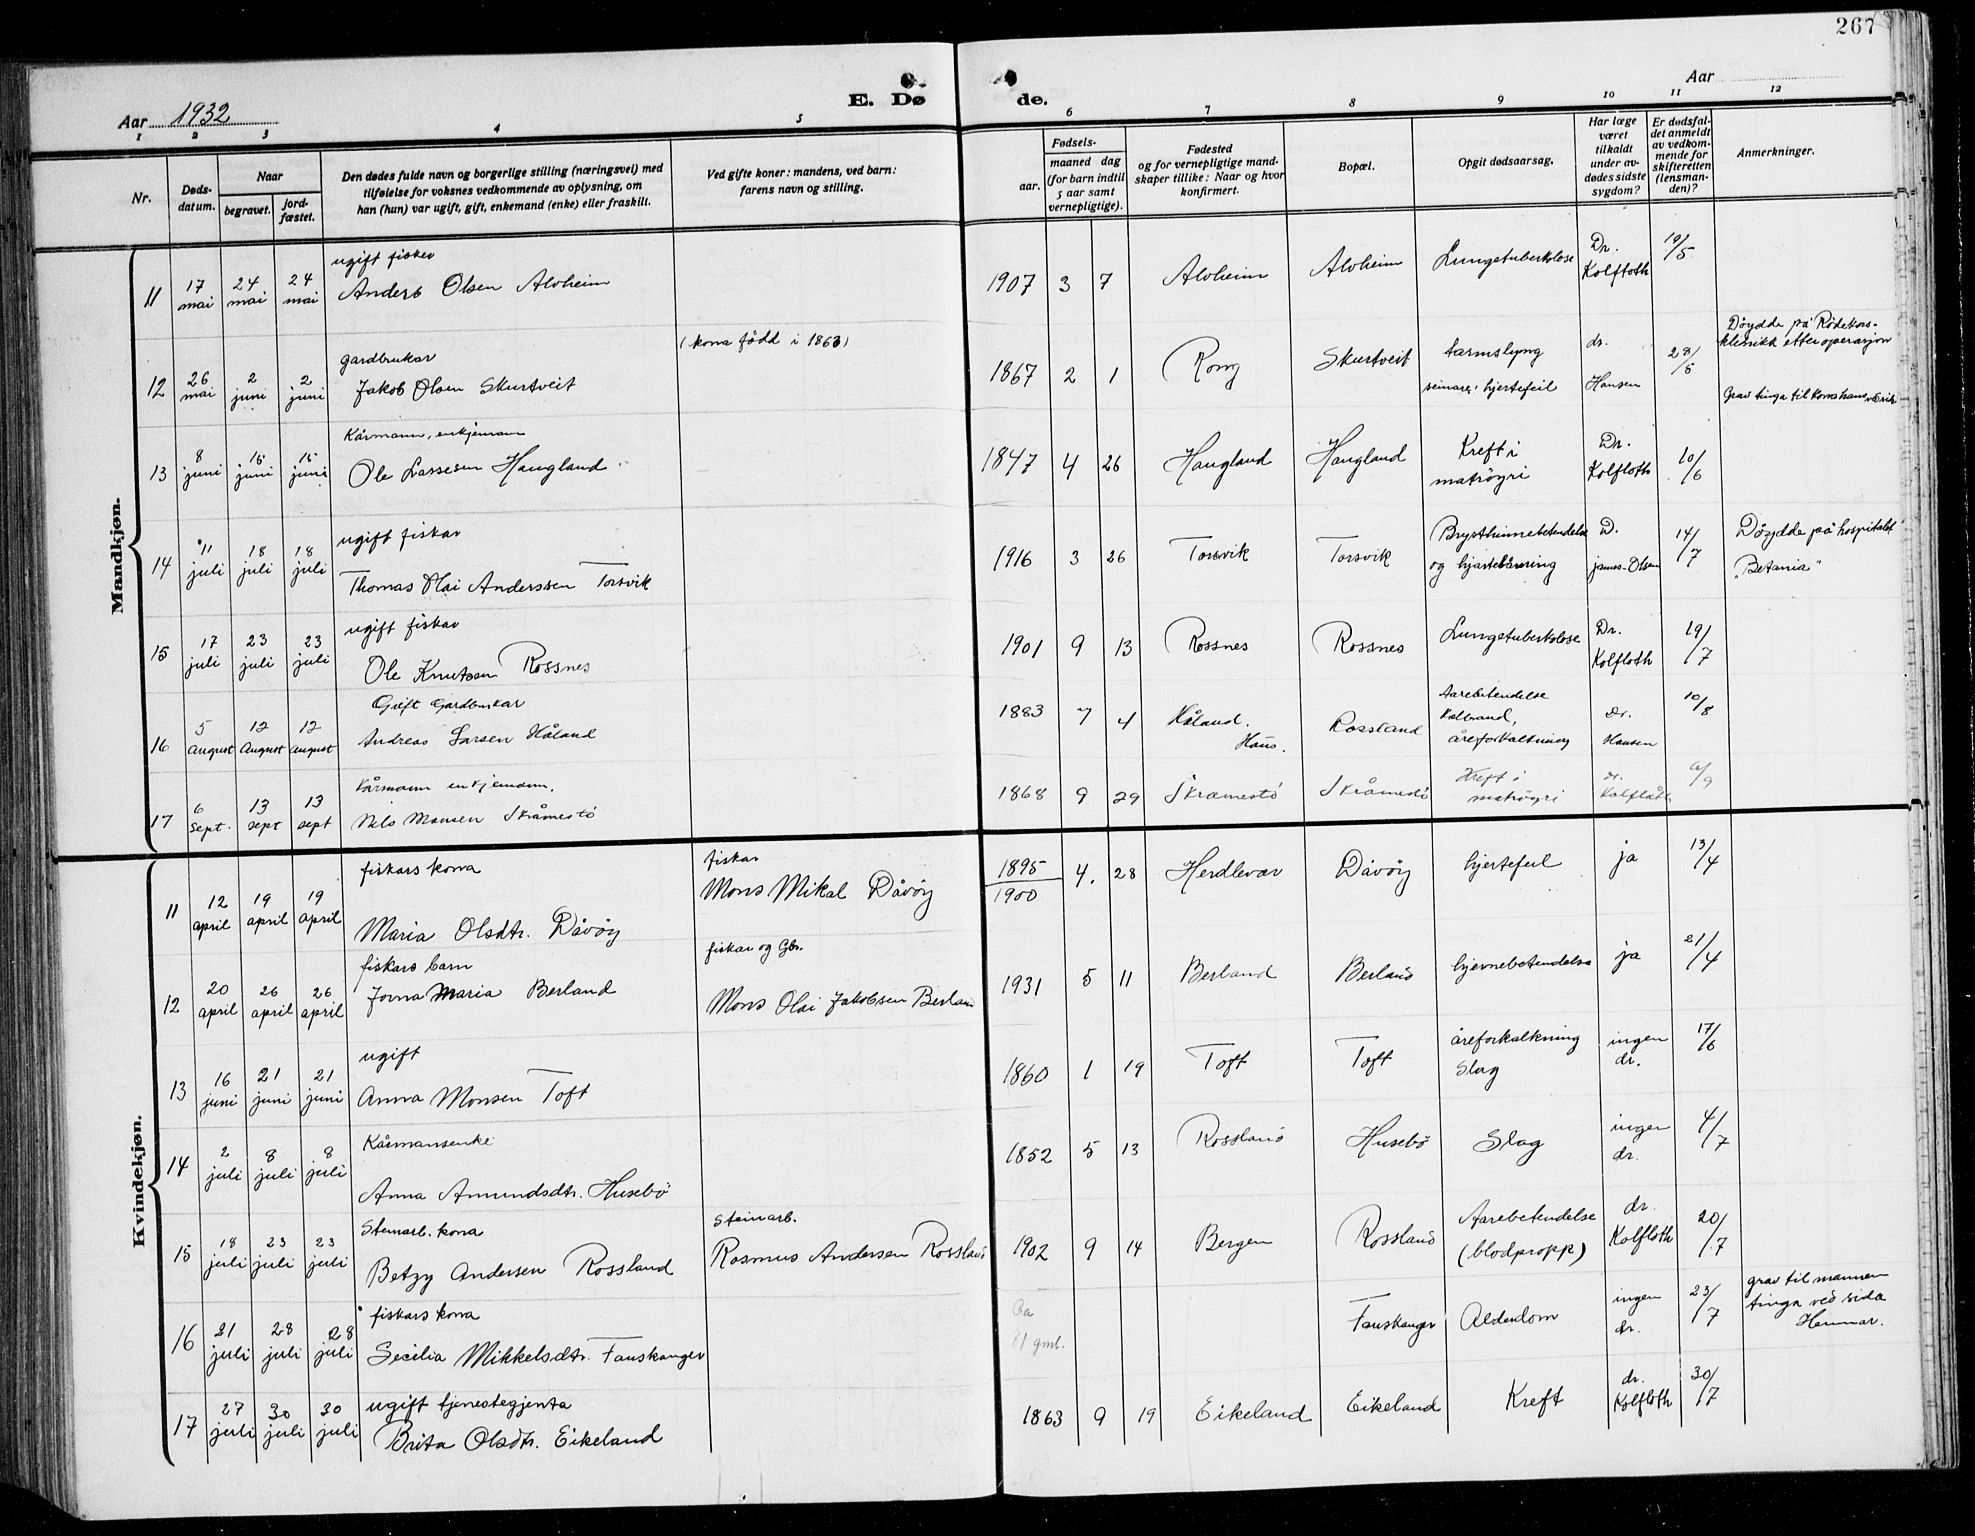 267
Aar 1932
E. Døde.
Aar
1 2 3 4 5 6 7 8 9 10 11 12
Nr.
Døds-
datum.
Naar
begravet.
jord-
fæstet.
Den dødes fulde navn og borgerlige stilling (næringsvei) med
tilføielse for voksnes vedkommende av oplysning, om
han (hun) var ugift, gift, enkemand (enke) eller fraskilt.
Ved gifte koner: mandens, ved barn:
farens navn og stilling.
Fødsels-
aar.
maaned dag
(for barn indtil
5 aar samt
vernepligtige).
Fødested
og for vernepligtige mand-
skaper tillike: Naar og hvor
konfirmert.
Bopæl.
Opgit dødsaarsag.
Har læge
været
tilkaldt
under av-
dødes sidste
sygdom?
Er dødsfal-
det anmeldt
av vedkom-
mende for
skifteretten
(lensman-
den)?
Anmerkninger.
Mandkjøn.
ugift fisker
11 17 mai 24 mai 24 mai Anders Olsen Alvheim 1907 3 7 Alvheim Alvheim Lungetuberkolose Dr. Kolfloth 19/5
gardbrukar (kona född i 1863)
12 26 mai 2 juni 2 juni Jakob Olsen Skurtveit 1867 2 1 Rong Skurtveit tarmslyng seinare: hjertefeil dr. Hansen 28/5 Döydde på Rödekors-
klinikk etter operasjon
Grav tinga til kona hans ved sida
Kårmann, enkjemann
13 8 juni 15 juni 15 juni Ole Larssen Haugland 1847 4 26 Haugland Haugland Kreft i matröyri Dr. Kolfloth 10/6
ugift fiskar
14 11 juli 18 juli 18 juli Thomas Olai Anderssen Torsvik 1916 3 26 Torsvik Torsvik Brysthinnebetendelse og hjartelåring D. james-Olsen 14/7 Döydde på hospitalet
"Betania"
ugift fiskar
15 17 juli 23 juli 23 juli Ole Knutsen Rossnes 1901 9 13 Rossnes Rossnes Lungetuberkolose Dr. Kolfloth 19/7
Gift Gardbrukar
16 5 august 12 August 12 august Andreas Larsen Håland 1883 7 4 Håland. Haus. Rossland Aarebetendelse Kolbrand, åreforkalkning Dr. Hansen 10/8
Kårmann enkjemann.
17 6 sept. 13 sept 13 sept Nils Monsen Skåmestö 1868 9 29 Skramestö Skråmestö Kreft i matröyri dr. Kolflåth 6/9
Kvindekjøn.
fiskars kona fiskar
11 12 april 19 april 19 april Maria Olsdtr. Dåvöy Mons Mikal Dåvöy 1895/1900 4. 28 Herdlevær Dåvöy hjertefeil ja 13/4
fiskars barn fiskar og Gbr.
12 20 april 26 april 26 april Jorna Maria Berland Mons Olai Jakobsen Berland 1931 5 11 Berland Berland hjernebetendelse ja 21/4
ugift
13 16 juni 21 juni 21 juni Anna Monsen Toft 1860 1 19 Toft Toft åreforkalkning Slag ingen dr. 17/6
Kårmansenke
14 2 juli 8 juli 8 juli Anna Amundsdtr. Husebö 1852 5 13 Rossland Husebö Slag ingen dr. 4/7
Steinarb. kona Steinarb.
15 18 juli 23 juli 23 juli Betzy Andersen Rossland Rasmus Andersen Rossland 1902 9 14 Bergen Rossland Aarebetendelse (blodpropp) dr. Kolfloth 20/7
fiskars kona
16 21 juli 28 juli 28 juli Secilia Mikkelsdtr. Fauskanger Ca gml. Fauskanger Alderdom ingen dr. 23/7 grav til mannen
tinga ved sida
Hennar.
ugift tjenestegjenta
17 27 juli 30 juli 30 juli Brita Olsdtr. Eikeland 1863 9 19 Eikeland Eikeland Kreft dr. Kolfloth 30/7